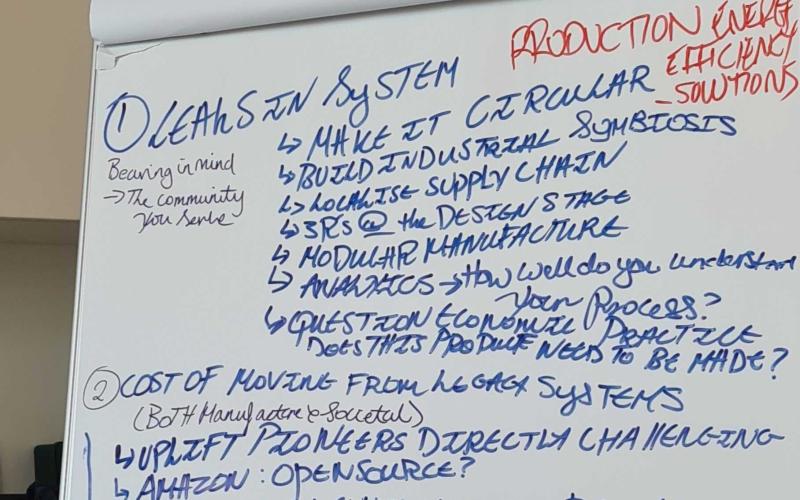 PRODUCTION ENERGY
EFFICIENCY
- SOLUTIONS
① LEAKS IN SYSTEM
↳ MAKE IT CIRCULAR
↳ BUILD INDUSTRIAL SYMBIOSIS
Bearing in mind
→ The community
you serve
↳ LOCALISE SUPPLY CHAIN
↳ 3R's @ the DESIGN STAGE
↳ MODULAR MANUFACTURE
↳ ANALYTICS → How well do you understand
your Process?
↳ QUESTION ECONOMIC PRACTICE
DOES THIS PRODUCT NEED TO BE MADE?
② COST OF MOVING FROM LEGACY SYSTEMS
(BOTH Manufacture & Societal)
↳ UPLIFT PIONEERS DIRECTLY CHALLENGING
↳ AMAZON : OPENSOURCE?